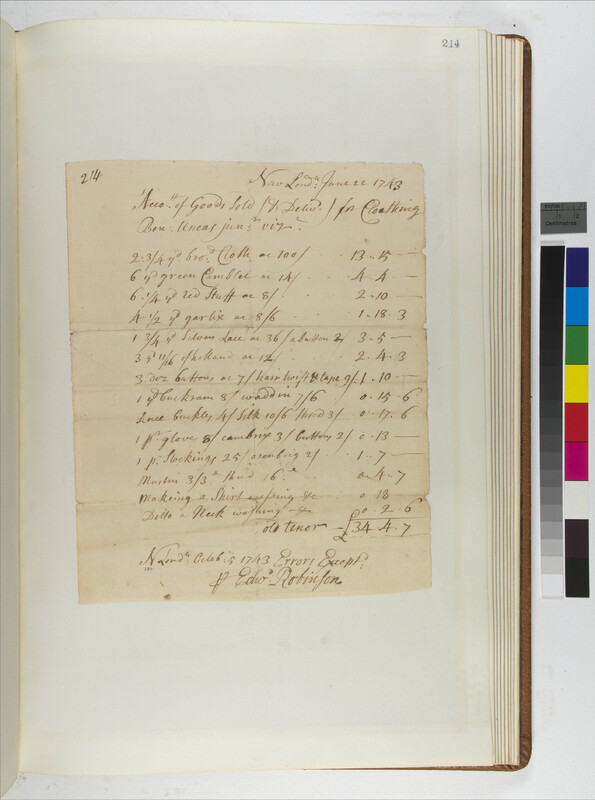 214
214
New Lond:n June 22 1743
Acco:tt of Goods Sold (& Deliv:d) for Cloathing
Ben: Uncas jun:r viz:t
2 3/4 yd bro:d Cloth at 100/ 13 - 15 -
6 yd green Camblet at 14/ 4 - 4 -
6 1/4 yd red Stuff at 8/ 2 - 10 -
4 1/2 yd garlix at 8/6 1 - 18 - 3
1 3/4 yd Silver Lace at 36/ a button 2/ 3 - 5 -
3 yd 11/16 of holland at 12/ 2 - 4 - 3
3 doz buttons at 7/ hair twist & tape 9/ 1 - 10 -
1 yd buckram 8/ waddin 7/6 0 - 15 - 6
knee buckles 4/ Silk 10/6 thrid 3/ 0 - 17 - 6
1 pr glove 8/ cambrix 3/ buttons 2/ 0 - 13 -
1 pr Stockings 25/ ozenbrig 2/ 1 - 7 -
Muslin 3/3d thrid 16d 0 - 4 - 7
Making a Shirt washing &c 0 18
Ditto a Neck washing &c 0 - 2 - 6
old tenor - £34 - 4 - 7
N Lond:n Octob:r 5 1743 Errors Except:d
p Edw:d Robinson